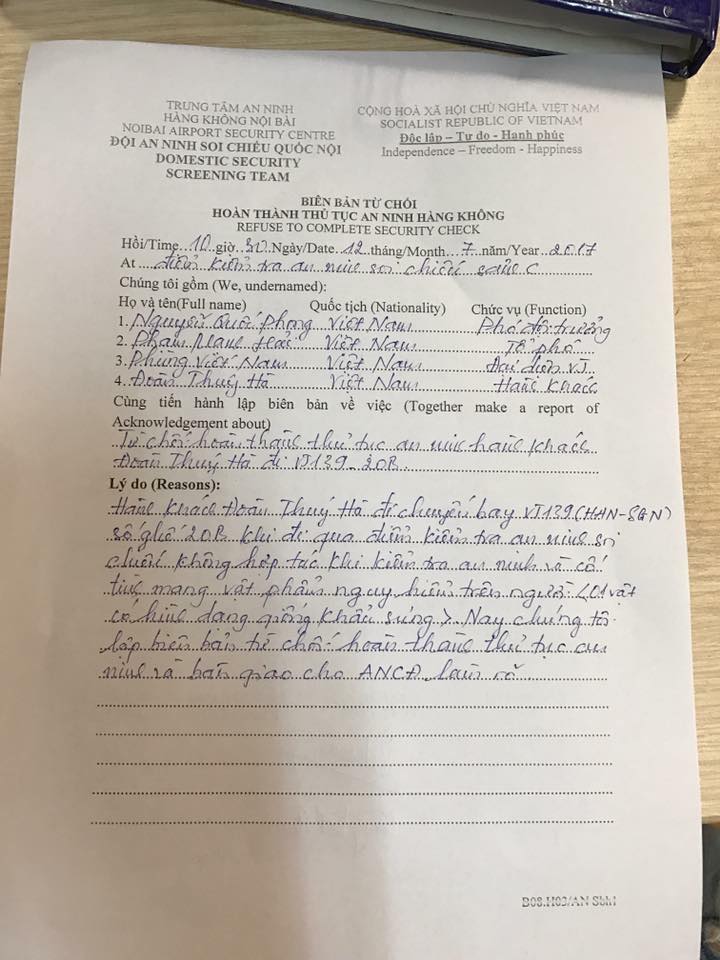 TRUNG TÂM AN NINH
HÀNG KHÔNG NỘI BÀI
NOIBAI AIRPORT SECURITY CENTRE
ĐỘI AN NINH SOI CHIẾU QUỐC NỘI
DOMESTIC SECURITY
SCREENING TEAM
CỘNG HOÀ XÃ HỘI CHỦ NGHĨA VIỆT NAM
SOCIALIST REPUBLIC OF VIETNAM
Độc lập – Tự do - Hạnh phúc
Independence – Freedom - Happiness
BIÊN BẢN TỪ CHỐI
HOÀN THÀNH THỦ TỤC AN NINH HÀNG KHÔNG
REFUSE TO COMPLETE SECURITY CHECK
Hồi/Time 10 giờ 30 Ngày/Date 12 tháng/Month 7 năm/Year 2017
At điểm kiểm tra an ninh soi chiếu sảnh C
Chúng tôi gồm (We, undernamed):
Họ và tên(Full name) Quốc tịch (Nationality) Chức vụ (Function)
1. Nguyễn Quốc Phong Việt Nam Phó đội trưởng
2. Phạm Mạnh Hải Việt Nam Tổ phó
3. Phùng Viết Nam Việt Nam Đại diện VJ
4. Đoàn Thuý Hà Việt Nam Hành khách
Cùng tiến hành lập biên bản về việc (Together make a report of
Acknowledgement about)
Từ chối hoàn thành thủ tục an ninh hành khách
Đoàn Thuý Hà đi VJ139 - 20B
Lý do (Reasons):
Hành khách Đoàn Thuý Hà đi chuyến bay VJ139 (HAN-SGN)
số ghế 20B khi đi qua điểm kiểm tra an ninh soi
chiếu không hợp tác khi kiểm tra an ninh và cố
tình mang vật phẩm nguy hiểm trên người <01 vật
có hình dạng giống khẩu súng>. Nay chúng tôi
lập biên bản từ chối hoàn thành thủ tục an
ninh và bàn giao cho ANCĐ làm rõ
B08.H03/AN Sbh1